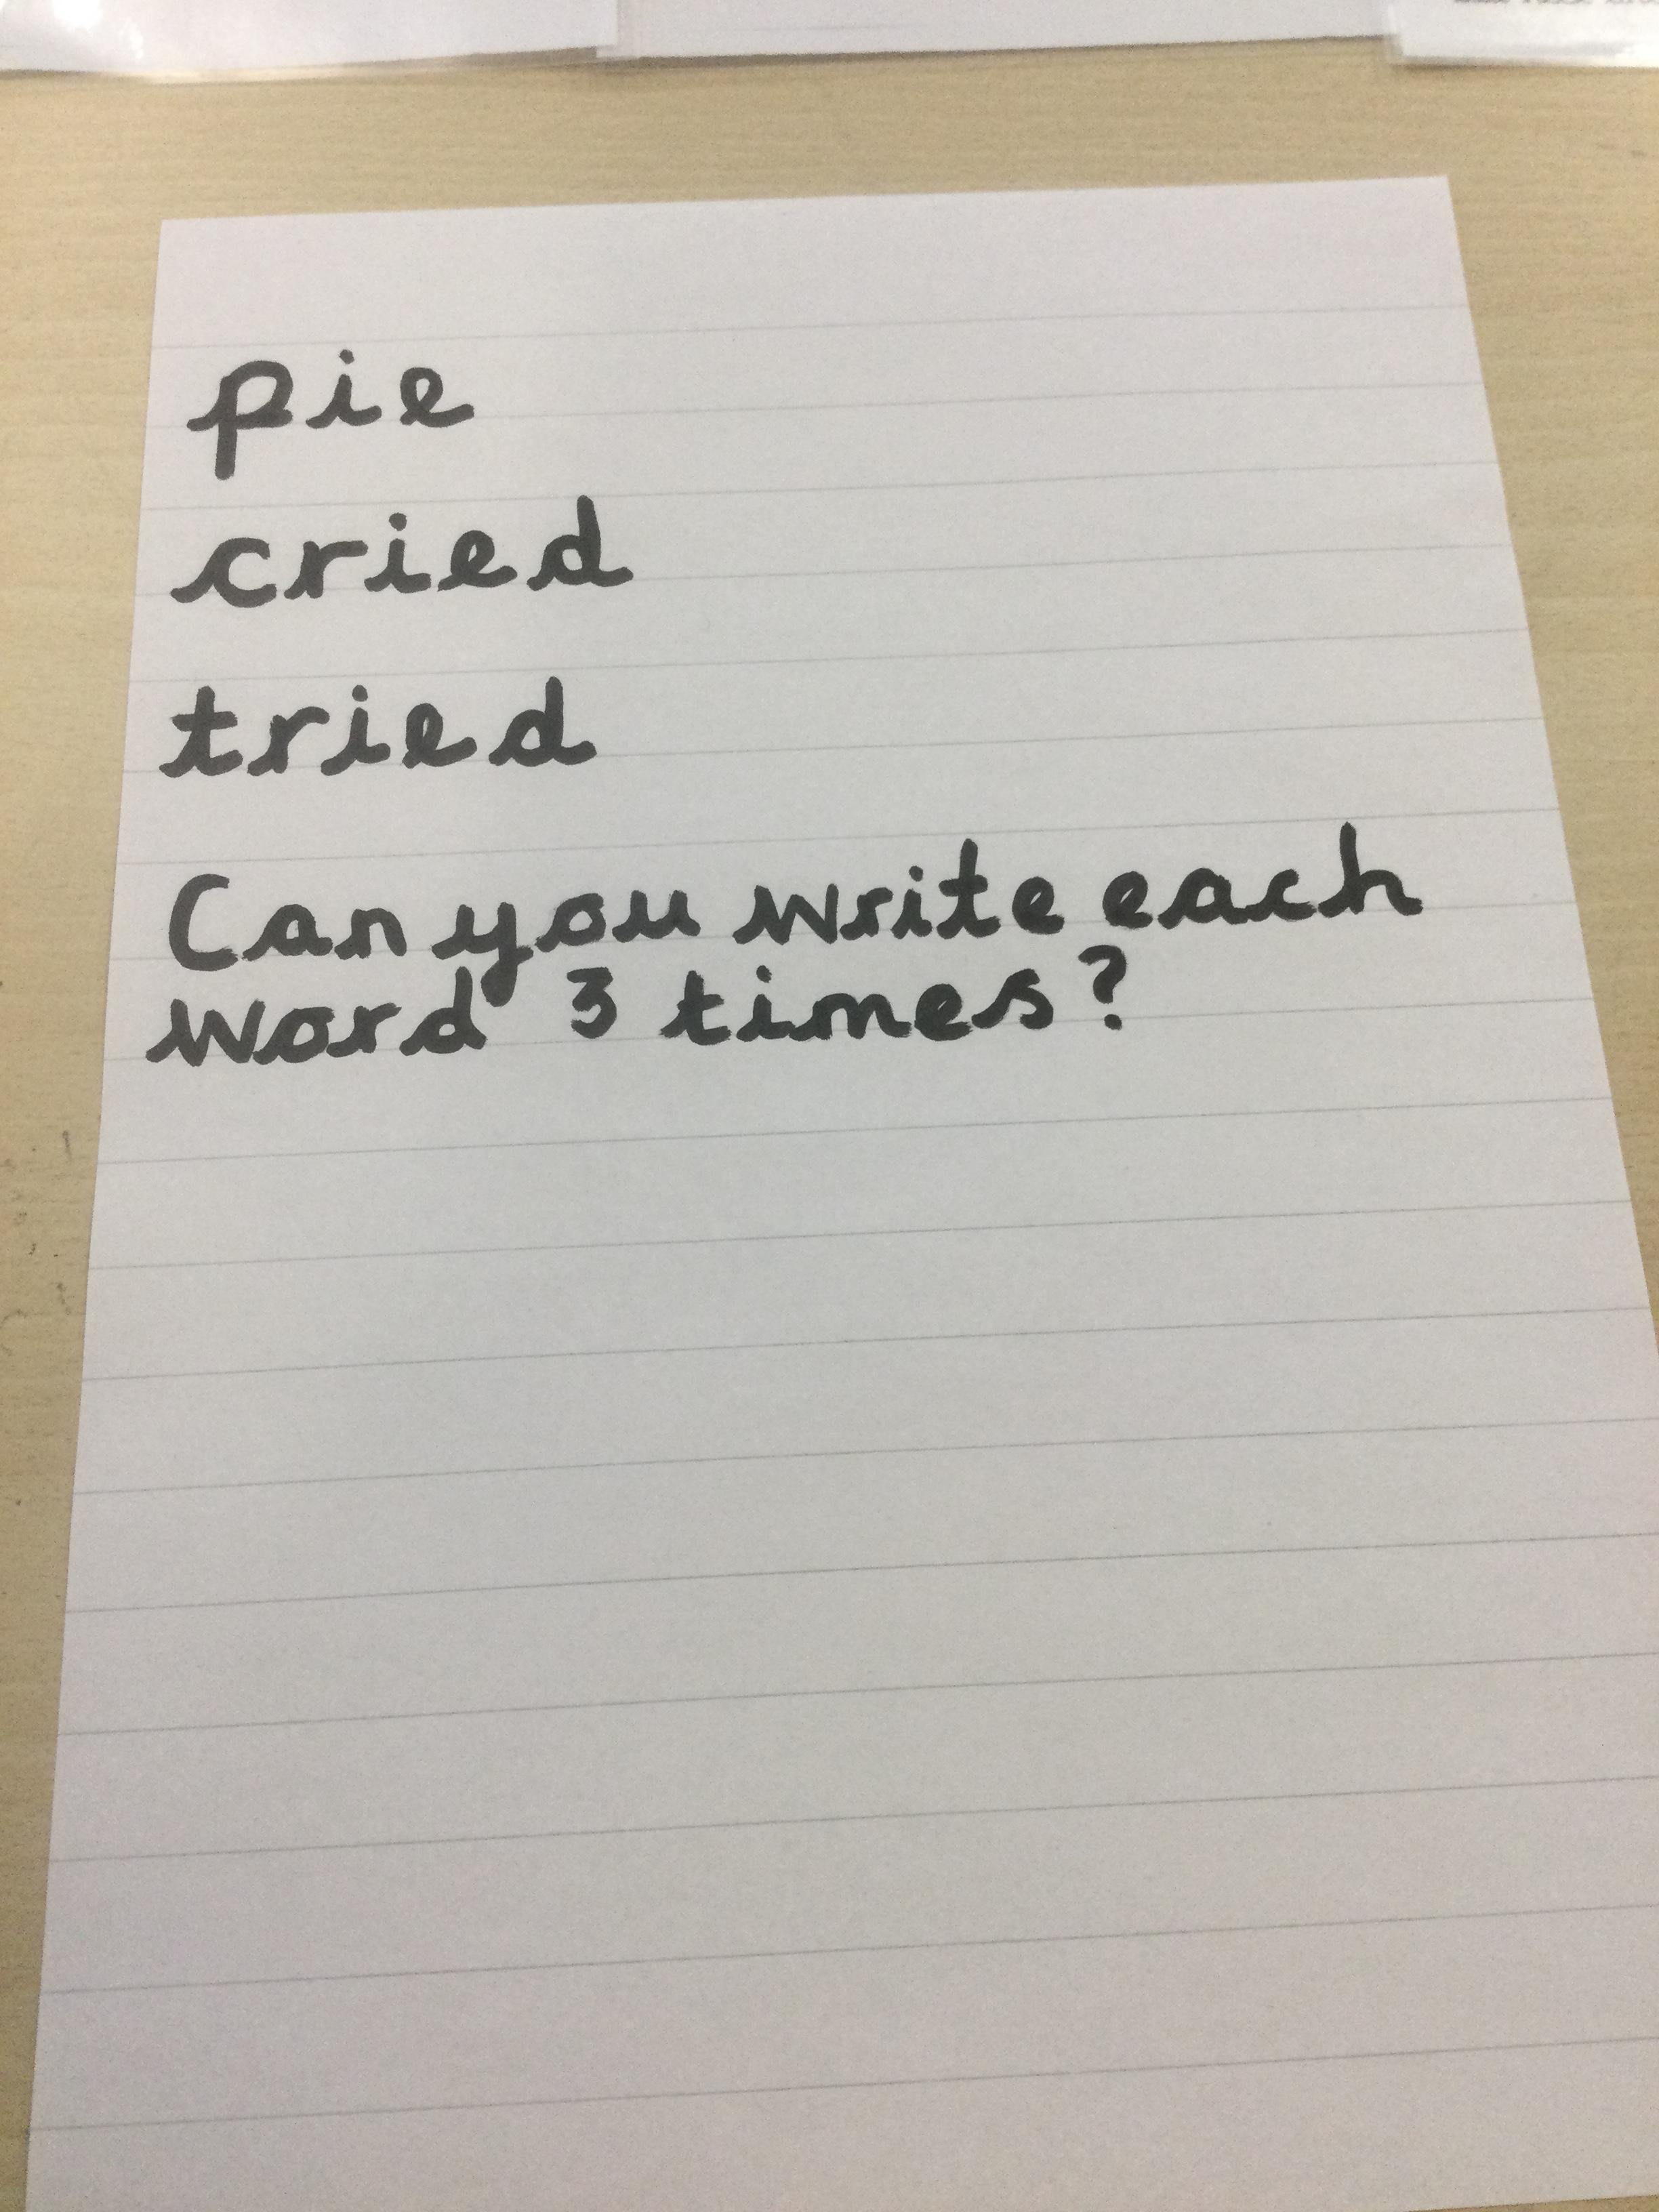 pie
cried
tried
Can you write each
word 3 times?